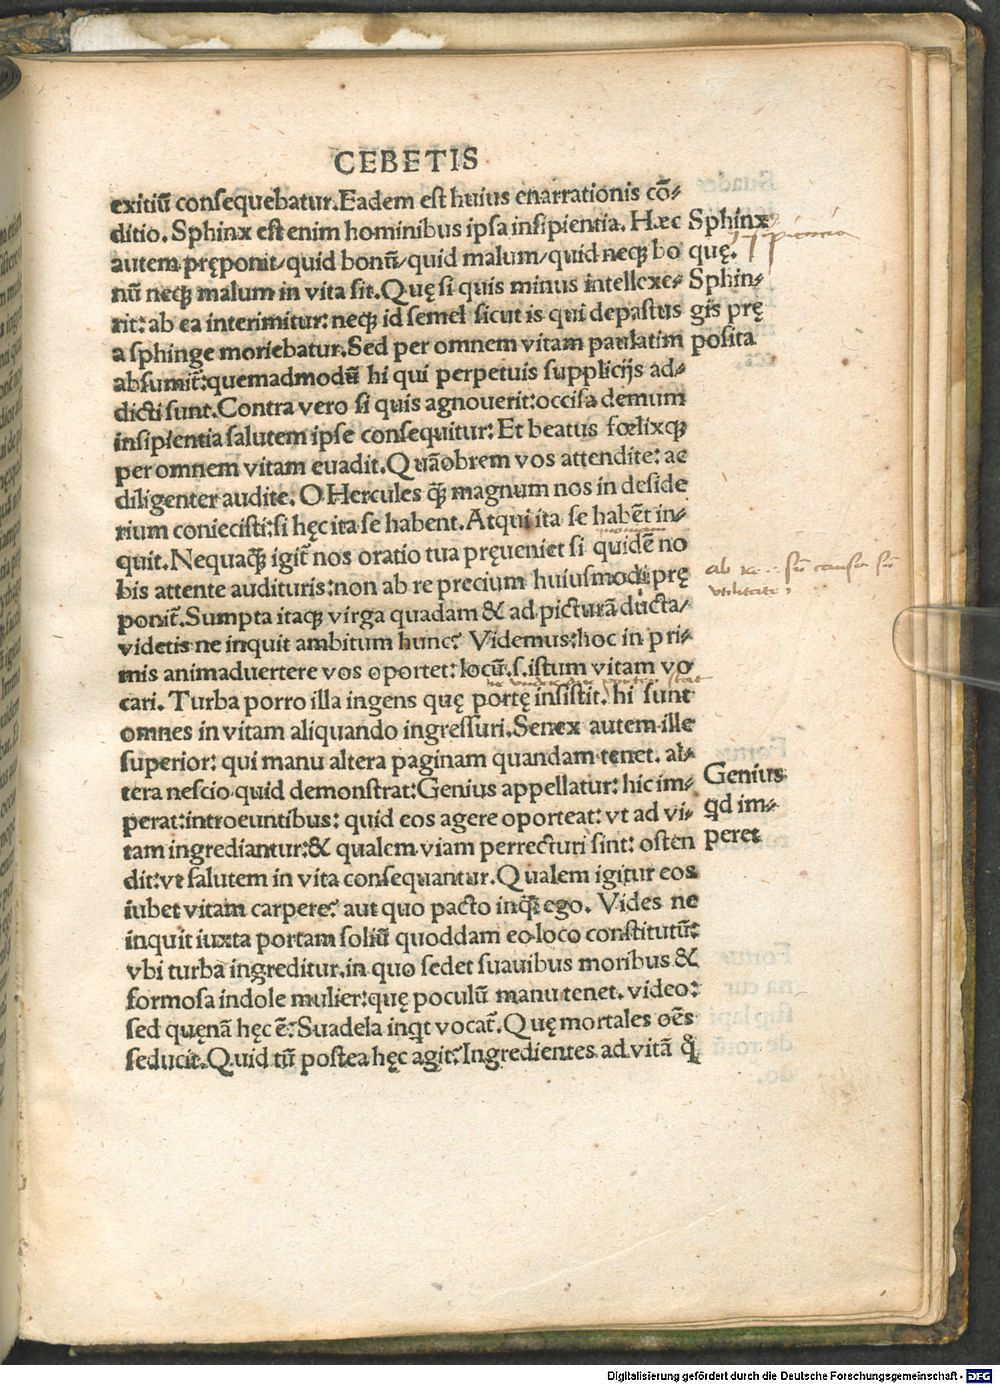 CEBETIS
exitiū consequebatur.Eadem est huius enarrationis cō⸗
ditio.Sphinx est enim hominibus ipsa insipientia. Hæc
autem pręponit/quid bonū/quid malum/quid neqꝫ bo
nū neqꝫ malum in vita sit.Quę si quis minus intellexe⸗
rit: ab ea interimitur: neqꝫ id semel sicut is qui depastus
a sphinge moriebatur.Sed per omnem vitam paulatim
absumit̄:quemadmodū hi qui perpetuis supplicijs ad⸗
dicti sunt.Contra vero si quis agnouerit:occisa demum
insipientia salutem ipse consequitur: Et beatus fœlixqꝫ
per omnem vitam euadit.Quāobrem vos attendite: ac
diligenter audite. O Hercules q̄ꝫ magnum nos in deside
rium coniecisti:si hęc ita se habent.Atqui ita se habēt in⸗
quit.Nequaq̄ꝫ igit̄ nos oratio tua pręueniet si quidē no
bis attente audituris:non ab re precium huiusmodi prę
ponit̄.Sumpta itaqꝫ virga quadam & ad picturā ducta/
videtis ne inquit ambitum hunc? Videmus:hoc in pri⸗
mis animaduertere vos oportet: locū.s.istum vitam vo
cari. Turba porro illa ingens quę portę insistit. hi sunt
omnes in vitam aliquando ingressuri.Senex autem ille
superior: qui manu altera paginam quandam tenet. al⸗
tera nescio quid demonstrat:Genius appellatur: hic im⸗
perat:introeuntibus: quid eos agere oporteat: vt ad vi⸗
tam ingrediantur:& qualem viam perrecturi sint: osten
dit:vt salutem in vita consequantur.Qualem igitur eos
iubet vitam carpere? aut quo pacto inq̄t ego. Vides ne
inquit iuxta portam soliū quoddam eo loco constitutū:
vbi turba ingreditur.in quo sedet suauibus moribus &
formosa indole mulier:quę poculū manu tenet. video:
sed quęnā hęc ē?Suadela inqt vocat̄.Quę mortales oēs
seducit.Quid tū postea hęc agit?Ingredientes ad vitā q̄
Sphinx
quę.
Sphin⸗
gis prę
posita
insipiencia
ab re
causa
vtilitate
Genius
qd im⸗
peret
Digitalisierung gefördert durch die Deutsche Forschungsgemeinschaft - DFG